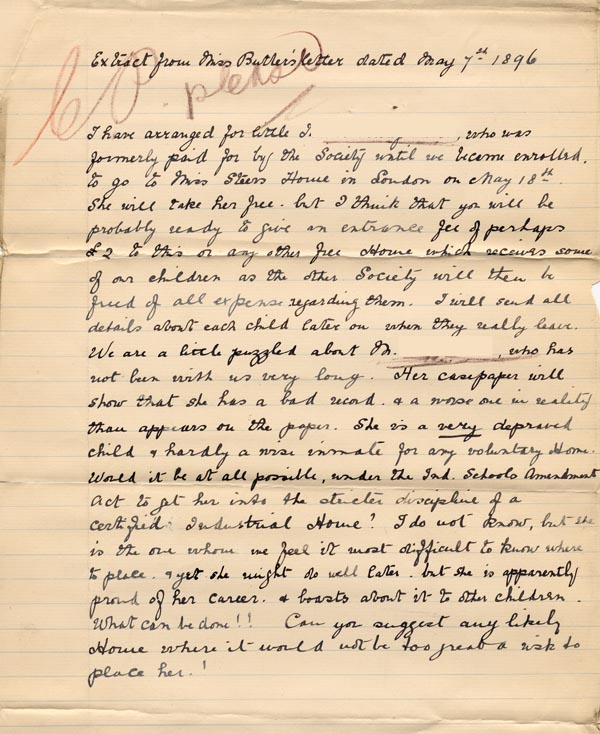 Extract from Miss Butler's letter dated May 7th 1896
please
I have arranged for little I. , who was
formerly paid for by the Society until we became enrolled,
to go to Miss Steers Home in London on May 18th.
She will take her free. but I think that you will be
probably ready to give an entrance fee of perhaps
£2 to this or any other free Home which receives some
of our children as the other Society will then be
freed of all expense regarding them. I will send all
details about each child later on when they really leave.
We are a little puzzled about M. , who has
not been with us very long. Her casepaper will
show that she has a bad record. & a worse one in reality
than appears on the paper. She is a very depraved
child & hardly a wise inmate for any voluntary Home.
Would it be at all possible, under the Ind. Schools Amendment
Act to get her into the stricter discipline of a
certified Industrial Home? I do not know, but she
is the one whom we feel it most difficult to know where
to place. & yet she might do well later. but she is apparently
proud of her career. & boasts about it to other children.
What can be done!! Can you suggest any likely
Home where it would not be too great a risk to
place her.!